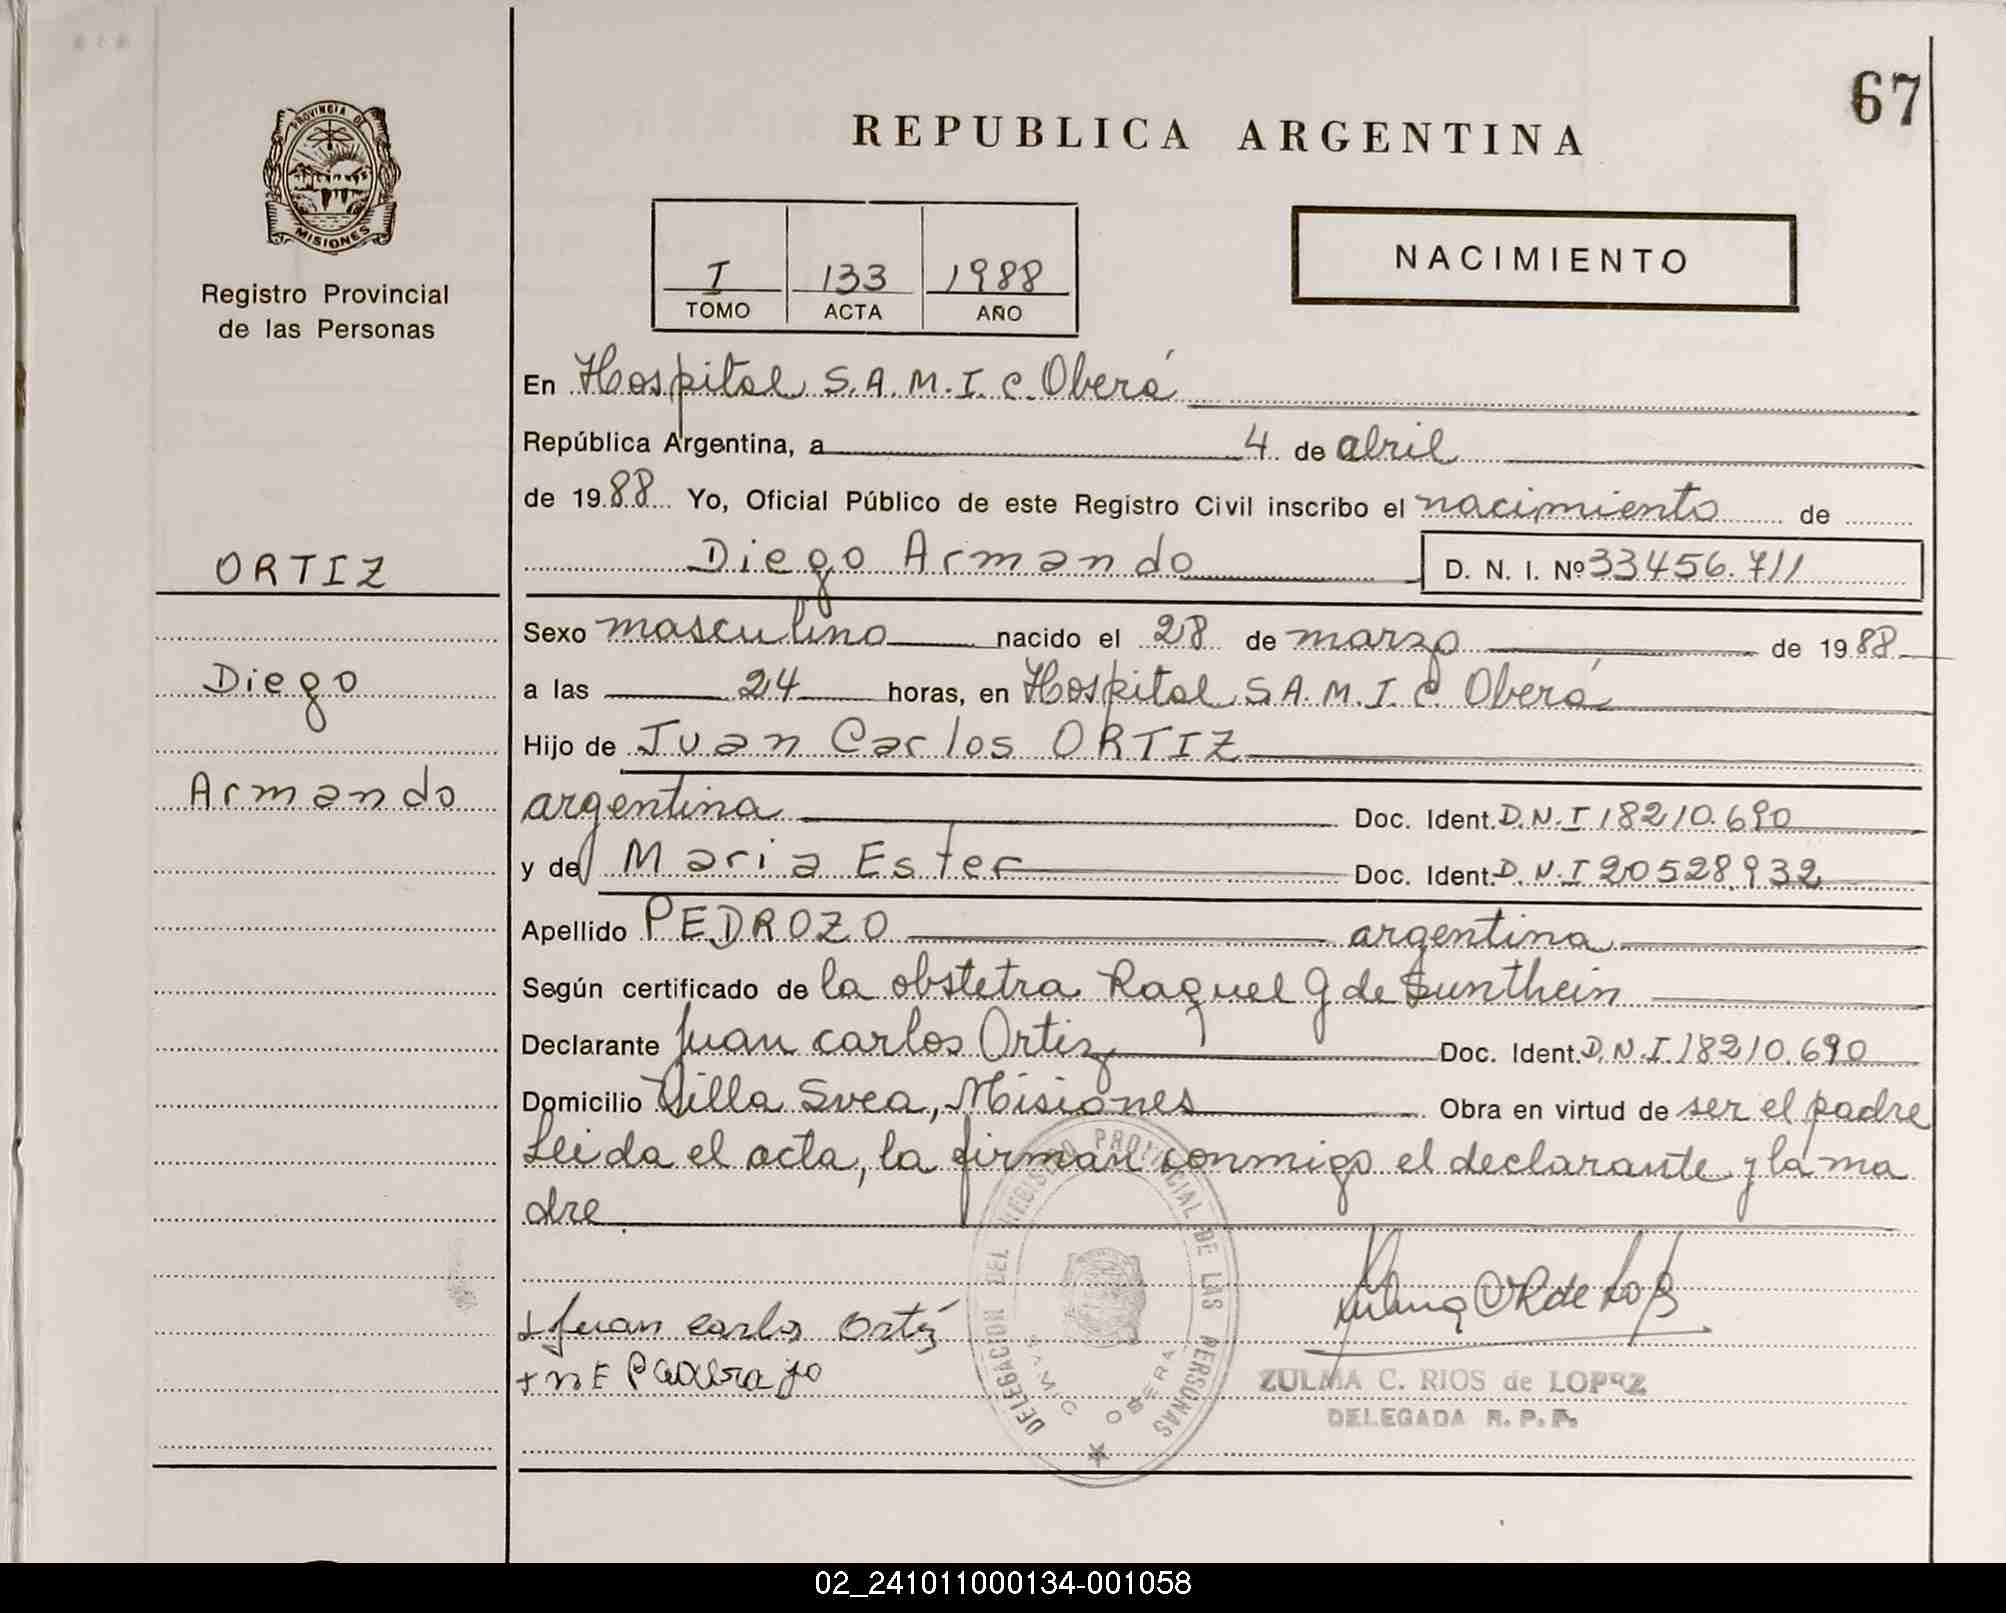 67
PROVINCIA DE
MISIONES
Registro Provincial
de las Personas
REPUBLICA ARGENTINA
I 133 1988
TOMO ACTA AÑO
NACIMIENTO
En Hospital S.A.M.I.C. Oberá
República Argentina, a 4 de abril
de 1988 Yo, Oficial Público de este Registro Civil inscribo el nacimiento de
ORTIZ
Diego Armando D. N. I. Nº 33456.711
Sexo masculino nacido el 28 de marzo de 1988
Diego
a las 24 horas, en Hospital S.A.M.I.C. Oberá
Hijo de Juan Carlos ORTIZ
Armando
argentina Doc. Ident. D.N.I 18210.690
y de Maria Ester Doc. Ident. D.N.I 20528.932
Apellido PEDROZO argentina
Según certificado de la obstetra Raquel G de Sunthein
Declarante Juan carlos Ortiz Doc. Ident. D.N.I. 18210.690
Domicilio Villa Svea, Misiones Obra en virtud de ser el padre
Leida el acta, la firman conmigo el declarante y la ma
dre
DELEGACION DEL REGISTRO PROVINCIAL DE LAS PERSONAS
SAMIC OBERA
Juan Carlos Ortiz
ZULMA C. RIOS de LOPEZ
DELEGADA R. P. P.
02_241011000134-001058